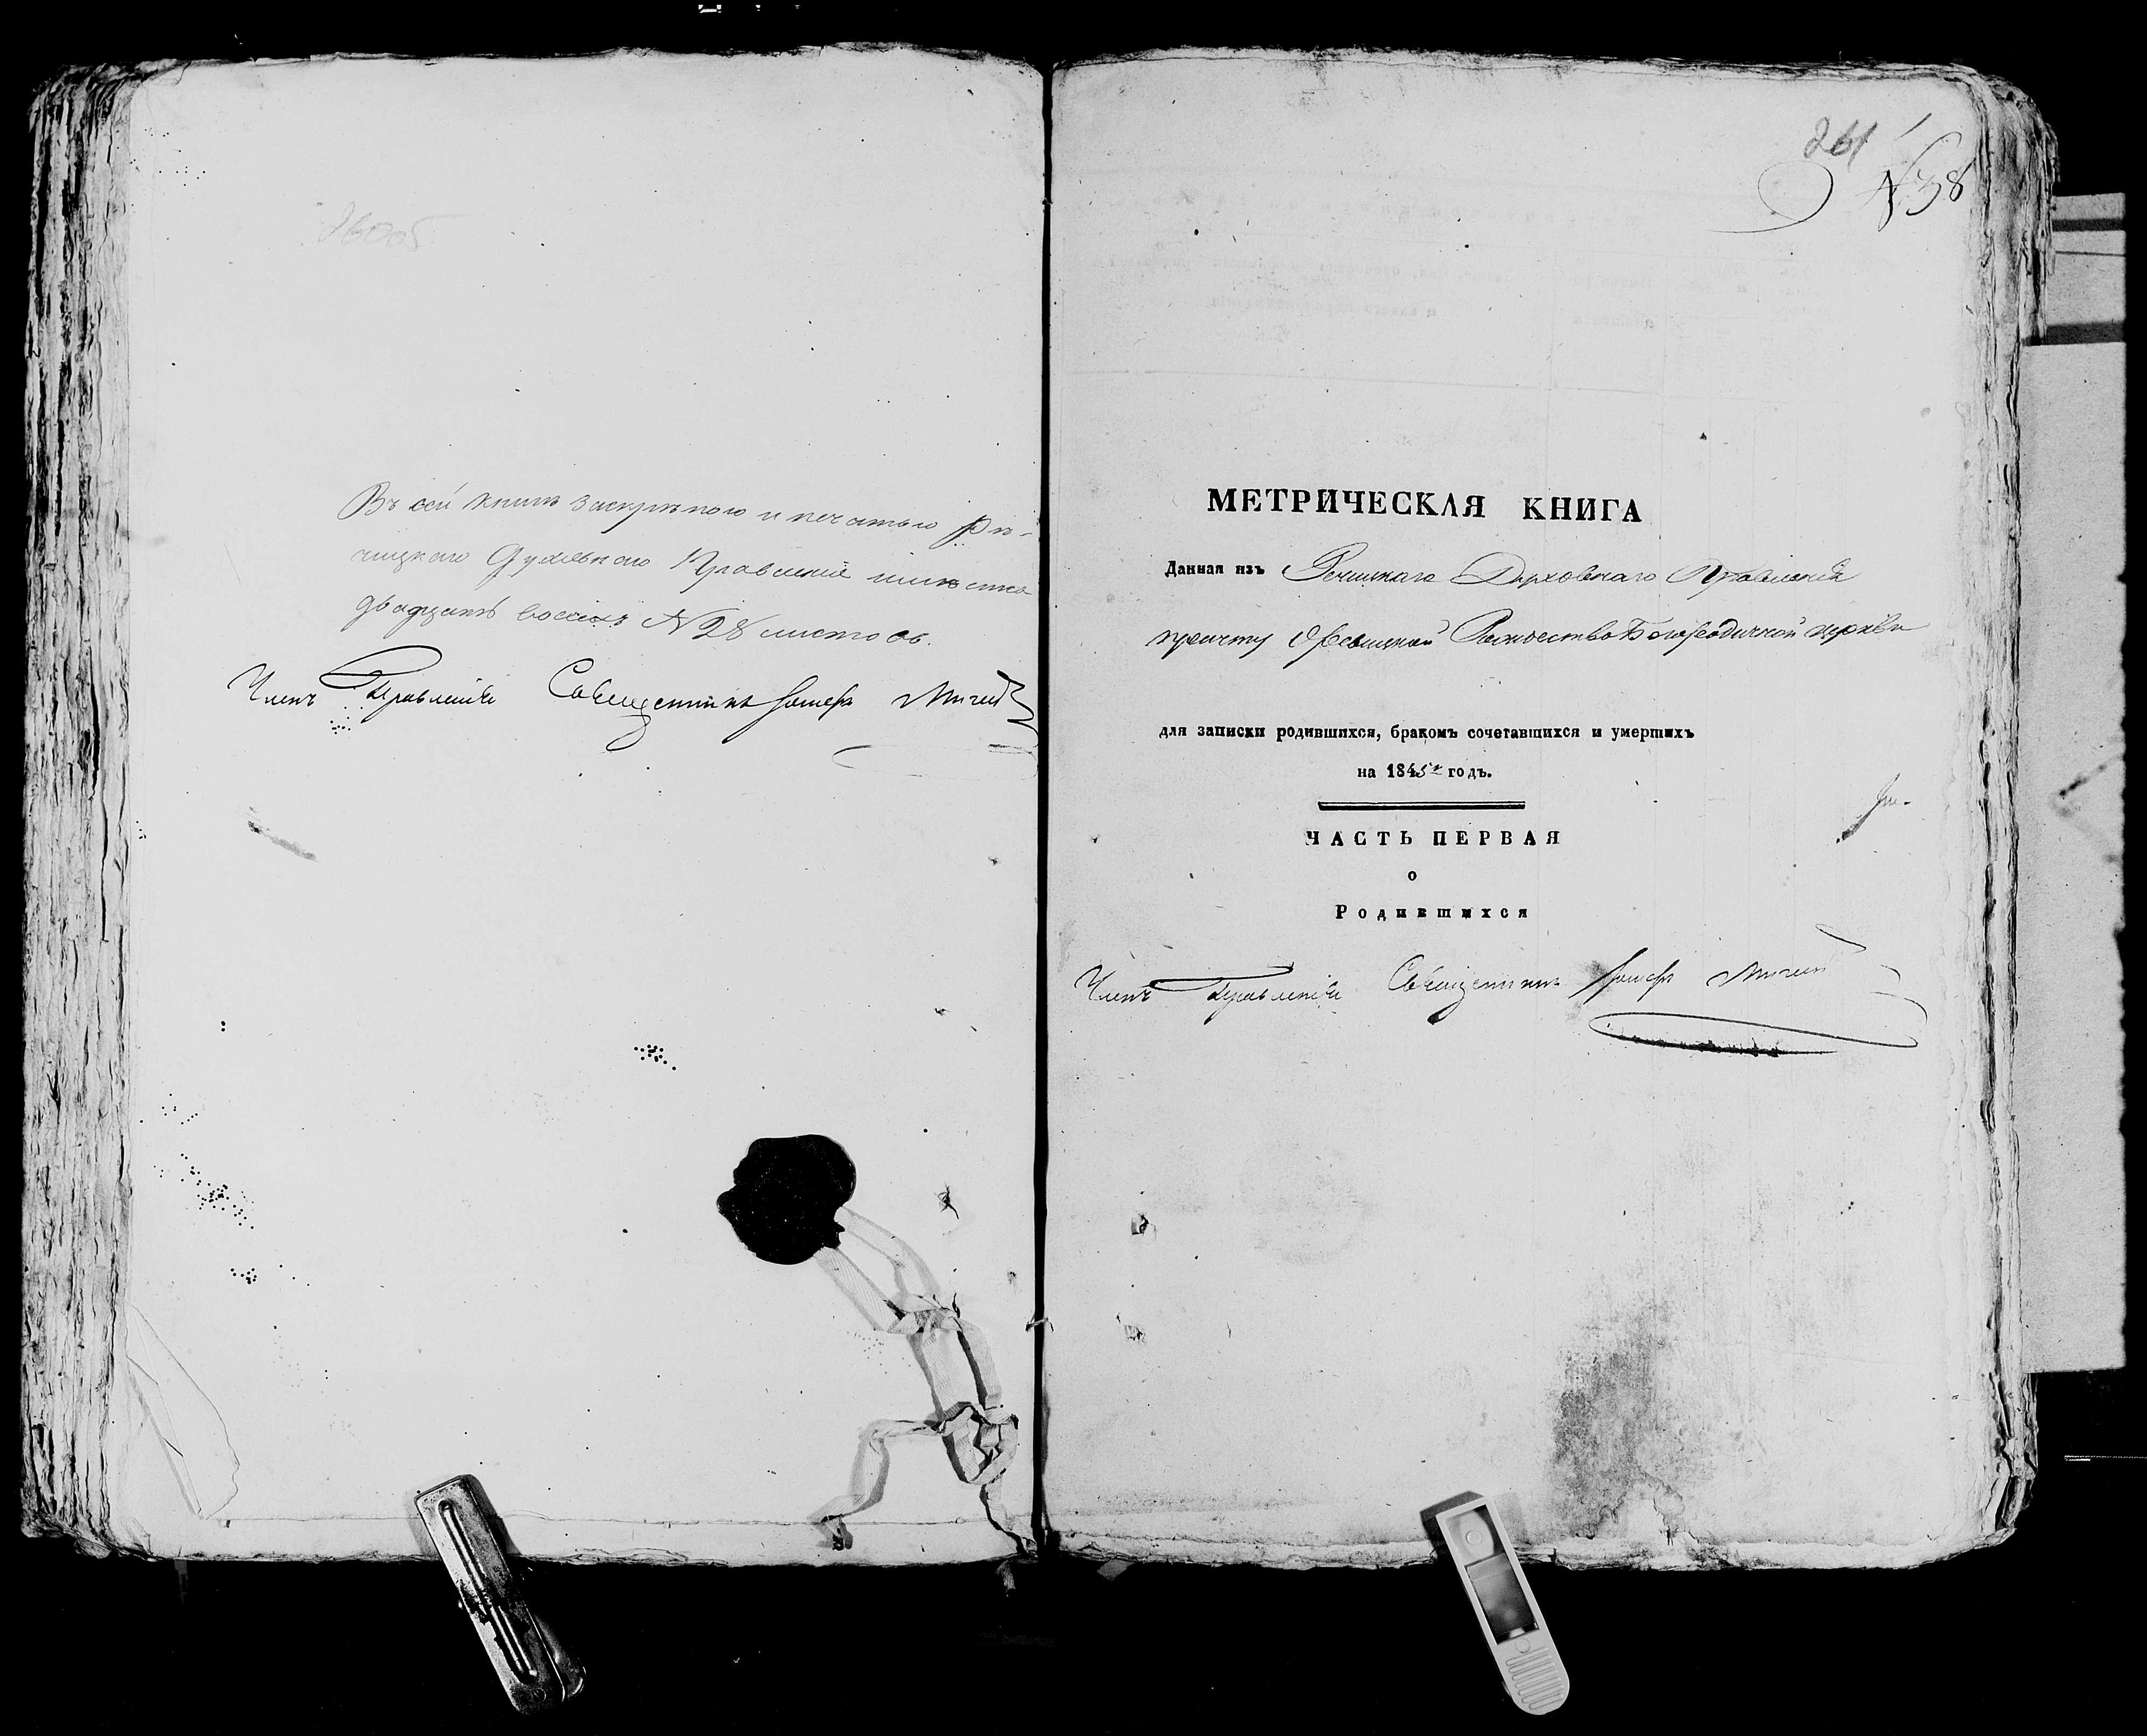 260об
Въ сей книгѣ заскрѣпою и печатью Рѣ-
чицкаго Духовнаго Правленія листовъ
двадцать восемь № 28 листовъ.
Членъ Правленія Священникъ
261
1
№38
МЕТРИЧЕСКАЯ КНИГА
Данная изъ Речицкаго Духовнаго Правленія
причту Рождество Богородичной церкви
для записки родившихся, бракомъ сочетавшихся и умершихъ
на 1845й годъ.
ЧАСТЬ ПЕРВАЯ
о
Родившихся
Членъ Правленія Священникъ